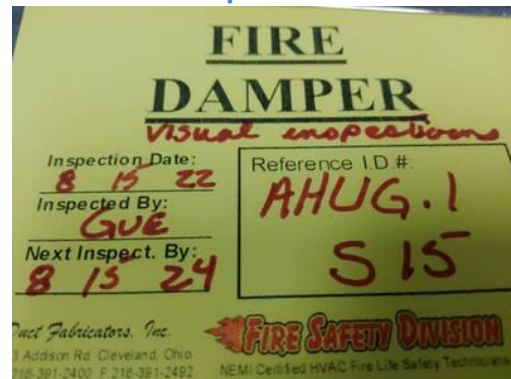 FIRE
DAMPER
Visual inspections
Inspection Date:
8 15 22
Inspected By:
GUE
Next Inspect. By:
8 15 24
Reference I.D.#:
AHUG.1
S 15
Duct Fabricators, Inc.
3 Addison Rd. Cleveland, Ohio
216-391-2400 F 216-391-2492
FIRE SAFETY DIVISION
NEMI Certified HVAC Fire Life Safety Technicians